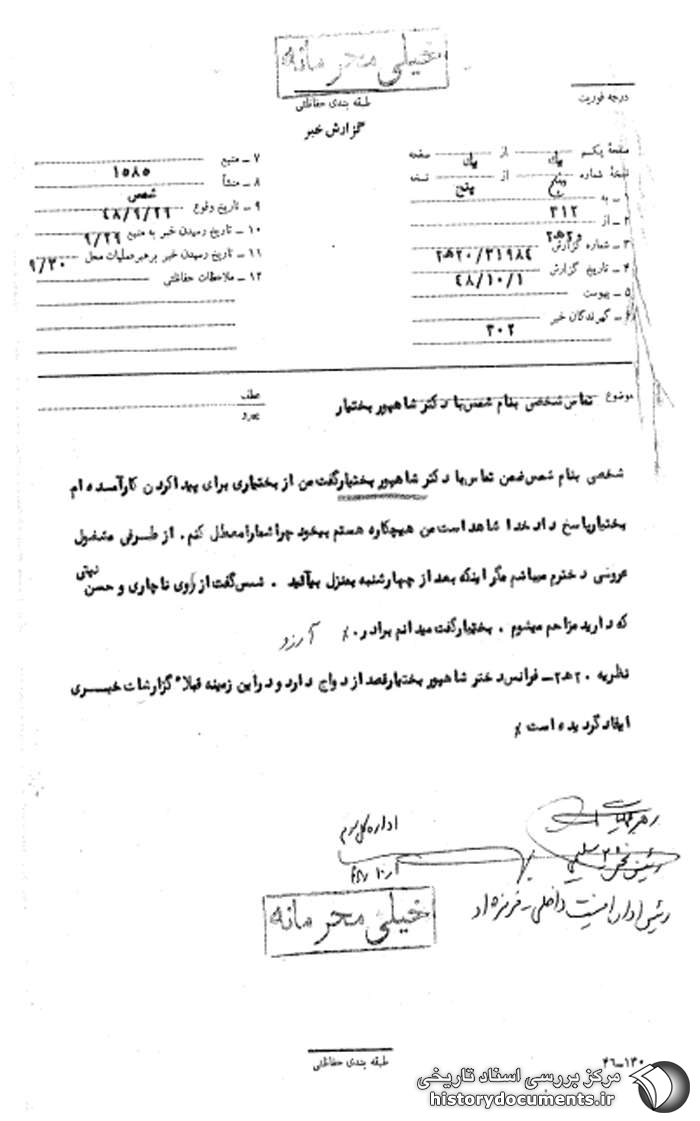 خیلی محرمانه
طبقه بندی حفاظتی
درجه فوریت
گزارش خبر
صفحهٔ یکم یک از یک صفحه
نسخهٔ شماره پنج از پنج نسخه
۱ ـ به ۳۱۲
۲ ـ از ۲۰ه۲
۳ ـ شماره گزارش ۲۰ه۲/۳۱۹۸۴
۴ ـ تاریخ گزارش ۴۸/۱۰/۱
۵ ـ پیوست
۶ ـ گیرندگان خبر ۳۰۲
۷ ـ منبع ۱۵۸۵
۸ ـ منشأ شمس
۹ ـ تاریخ وقوع ۴۸/۹/۲۹
۱۰ ـ تاریخ رسیدن خبر به منبع ۹/۲۹
۱۱ ـ تاریخ رسیدن خبر برهبر عملیات محل ۹/۳۰
۱۲ ـ ملاحظات حفاظتی
موضوع تماس شخصی بنام شمس با دکتر شاهپور بختیار
عطف
پیرو
شخصی بنام شمس ضمن تماس با دکتر شاهپور بختیار گفت من از بختیاری برای پیدا کردن کار آمده ام
بختیار پاسخ داد خدا شاهد است من هیچکاره هستم بیخود چرا شما را معطل کنم. از طرفی مشغول
عروسی دخترم میباشم مگر اینکه بعد از چهارشنبه بمنزل بیائید . شمس گفت از روی ناچاری و حسن نیتی
که دارید مزاحم میشوم . بختیار گفت میدانم برادر ٪ آرزو
نظریه ۲۰ه۲ـ فرانس دختر شاهپور بختیار قصد ازدواج دارد و در این زمینه قبلاً گزارشات خبــری
ایفاد گردیده است ٪
رهبر عملیات
رئیس بخش
اداره کل سوم
رئیس اداره امنیت داخلی ـ فرنژاد
خیلی محرمانه
طبقه بندی حفاظتی
۴۶ـ۱۳۰
مرکز بررسی اسناد تاریخی
historydocuments.ir